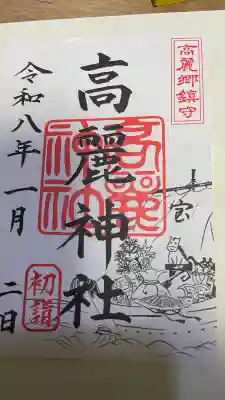 高麗郷鎮守
高麗神社
高麗神社
宝
初詣
令和八年一月二日